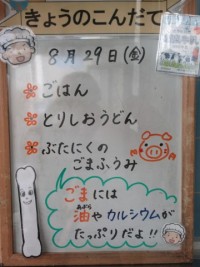 きょうのこんだて
8月29日(金)
ごはん
とりしおうどん
ぶたにくの
ごまふうみ
ごまには
あぶら
油やカルシウムが
たっぷりだよ!!